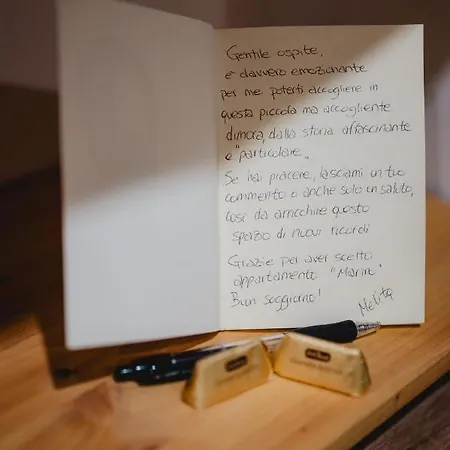 Gentile ospite,
è davvero emozionante
per me poterti accogliere in
questa piccola ma accogliente
dimora, dalla storia affascinante
e "particolare".
Se hai piacere, lasciami un tuo
commento o anche solo un saluto,
così da arricchire questo
spazio di nuovi ricordi
Grazie per aver scelto
appartamento "Marin"
Buon soggiorno!
Melita